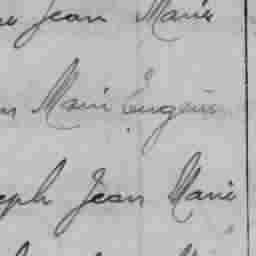 Jean Marie
Marie Eugène
eph Jean Marie